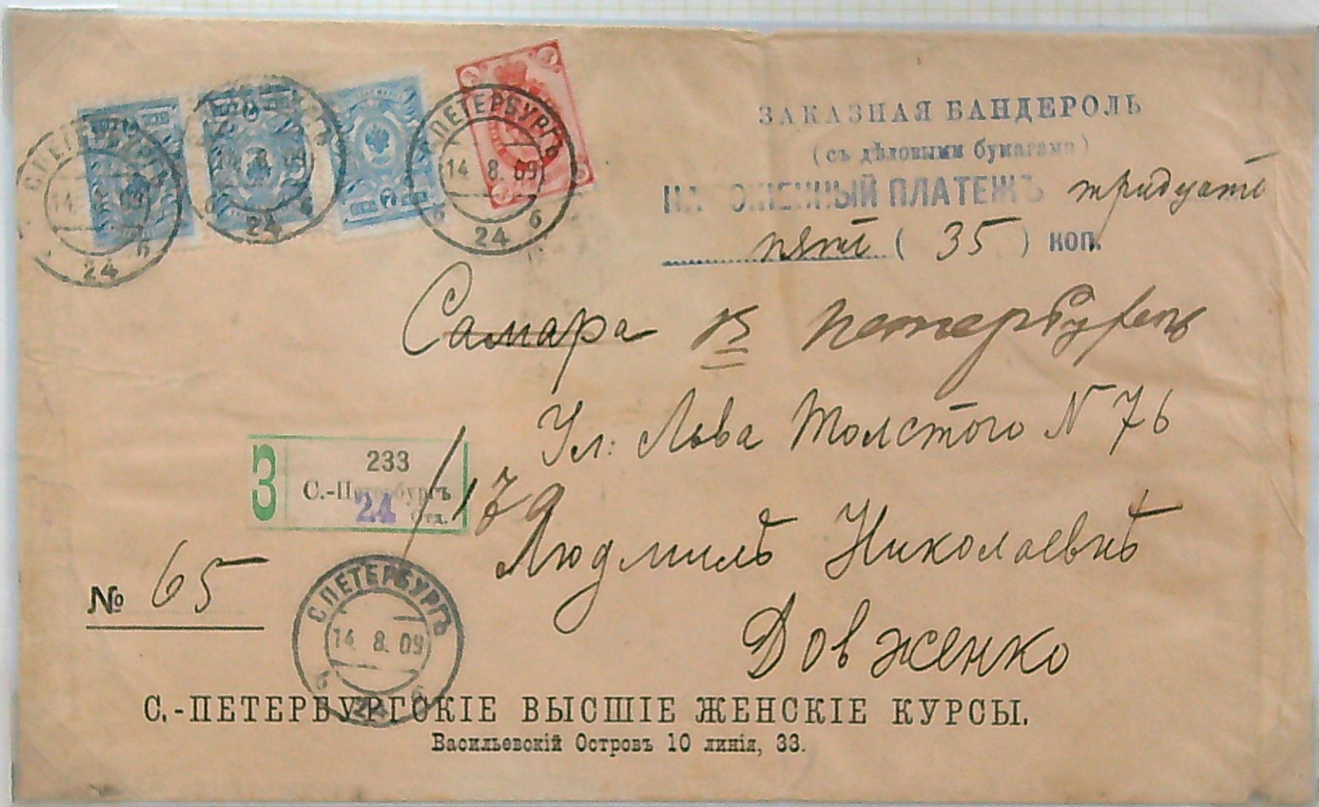 С.ПЕТЕРБУРГЪ
14 8 09
24
б б
С.ПЕТЕРБУРГЪ
14.8.09
24
б
С.ПЕТЕРБУРГЪ
14 8.09
б 24 б
ЗАКАЗНАЯ БАНДЕРОЛЬ
(съ дѣловыми бумагами)
НАЛОЖЕННЫЙ ПЛАТЕЖЪ тридцать
пять ( 35 ) коп.
Самара В Петербургъ
Ул: Льва Толстого N 76
З
233
С.-Петербургъ
24 Отд.
179
Людмилѣ Николаевнѣ
Довженко
№ 65
С.ПЕТЕРБУРГЪ
14.8.09
б 24 б
С.-ПЕТЕРБУРГСКІЕ ВЫСШІЕ ЖЕНСКІЕ КУРСЫ.
Васильевскій Островъ 10 линія, 33.